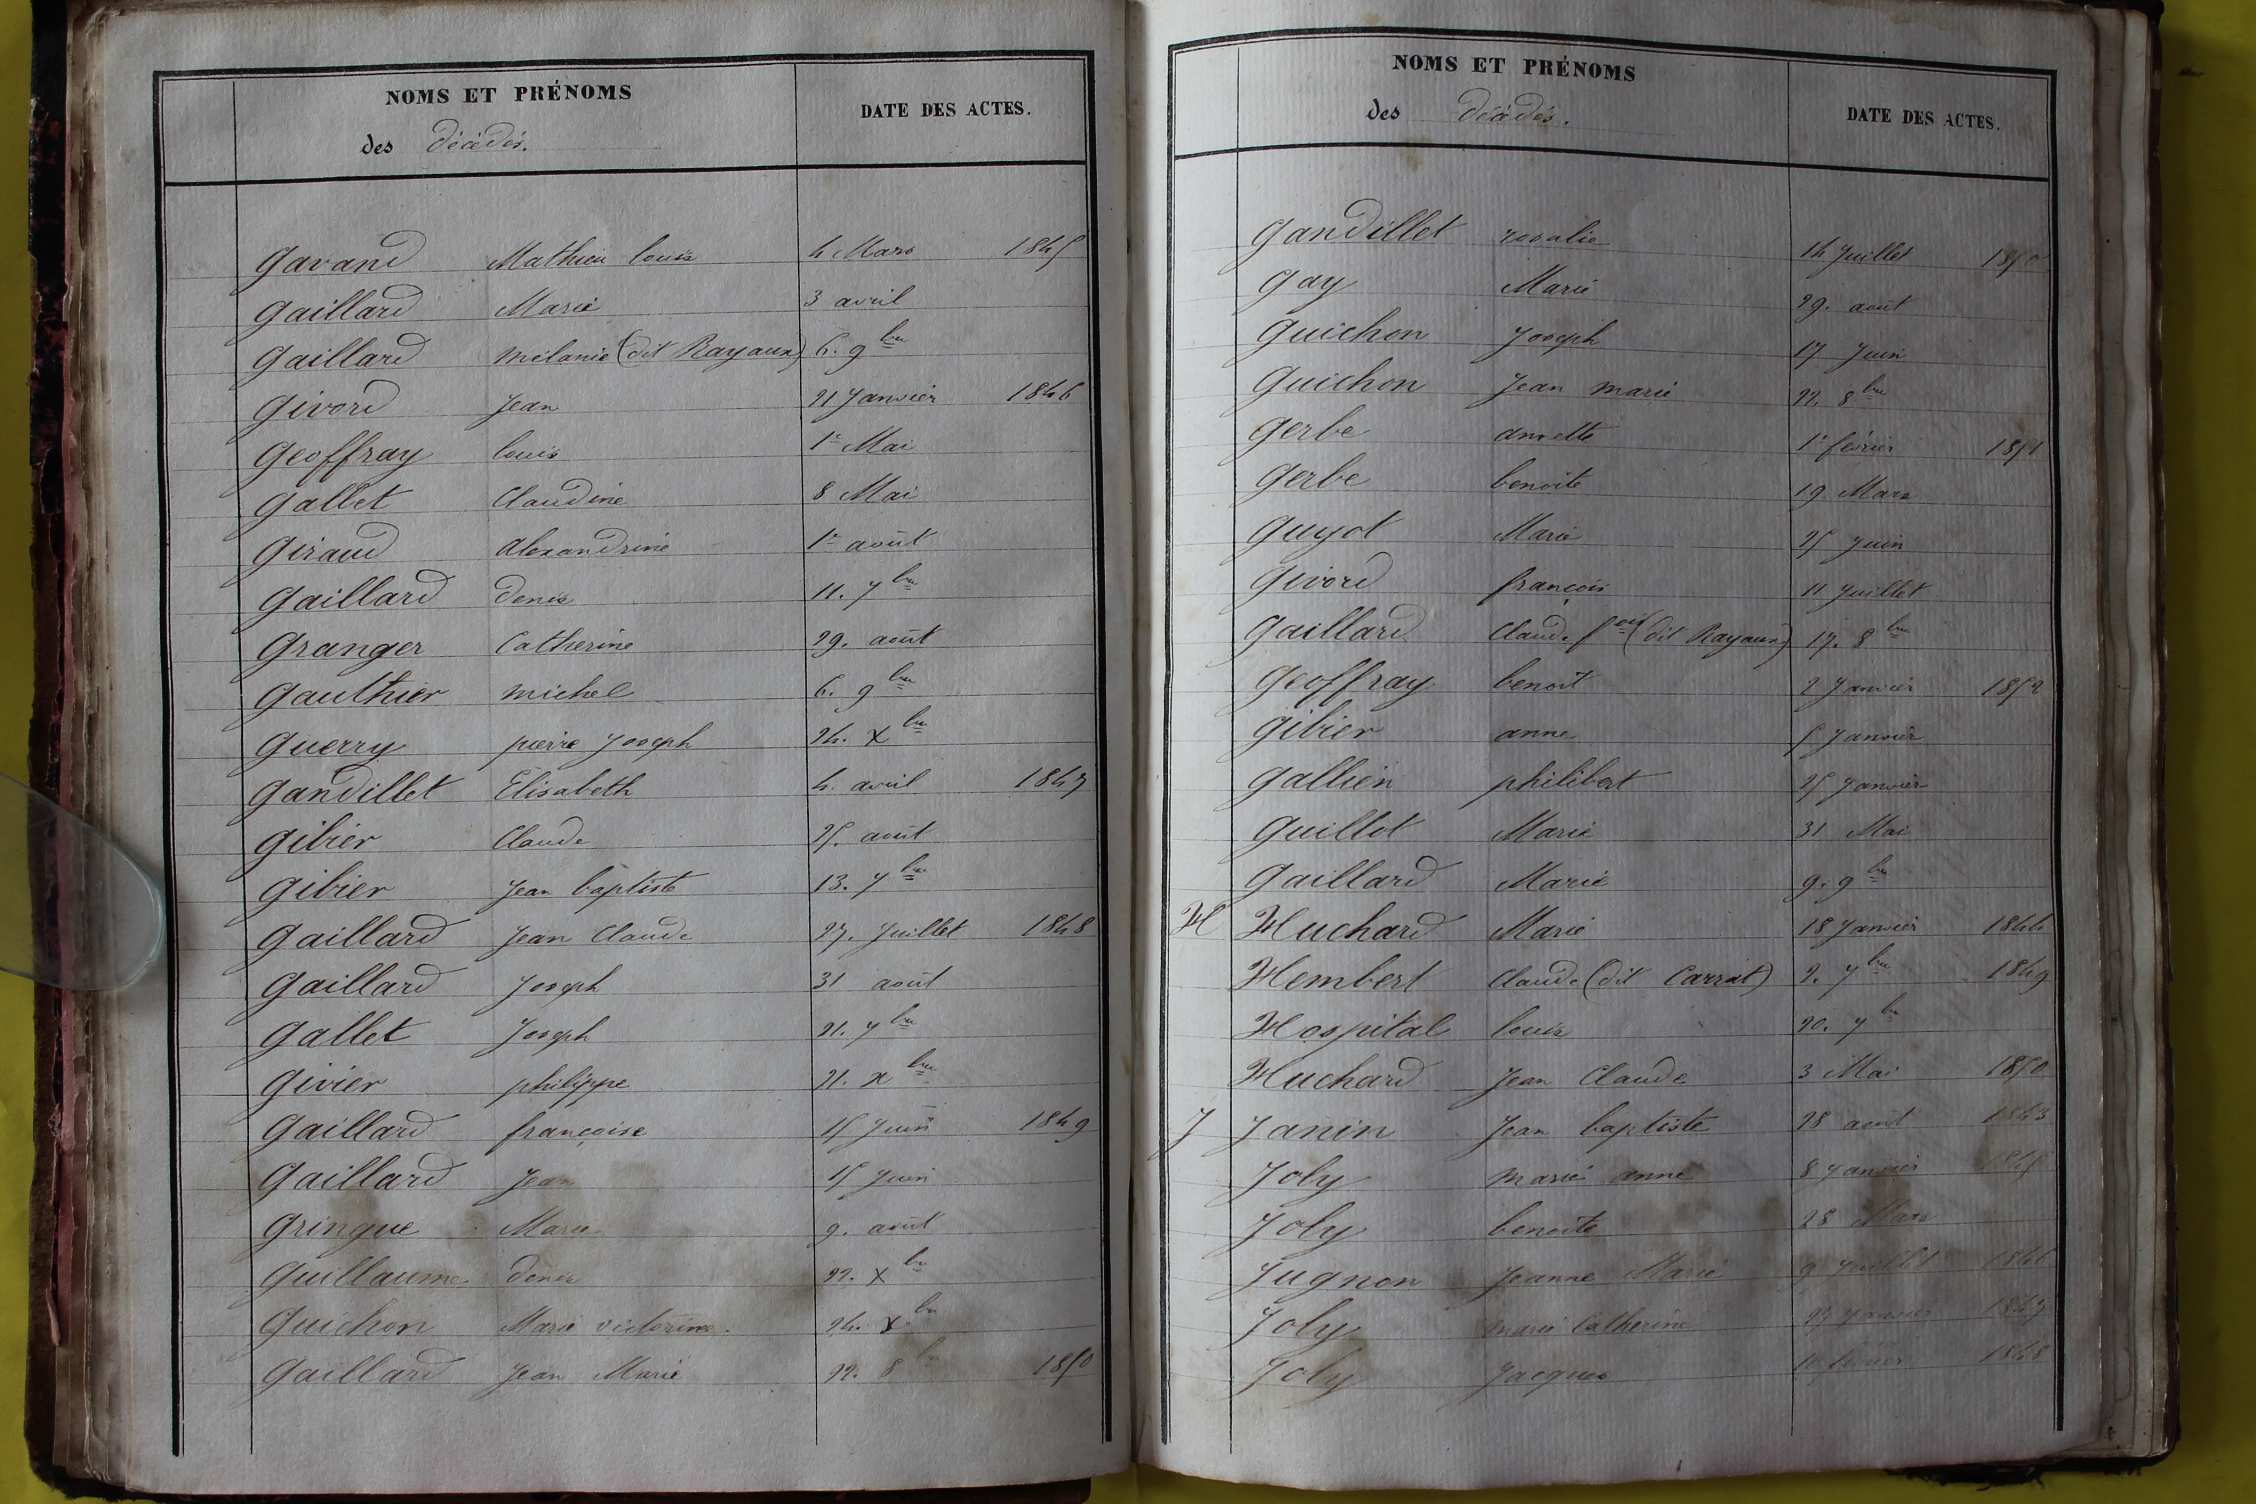 NOMS ET PRÉNOMS
des décédés.
DATE DES ACTES.
Gavand Mathieu louis 4 Mars 1845
Gaillard Marie 3 avril
Gaillard mélanie (dit Rayaux) 6. 9bre
Givord Jean 21 Janvier 1846
Geoffray louis 1er Mai
Gallet Claudine 8 Mai
Giraud alexandrine 1er août
Gaillard denis 11. 7bre
Granger Catherine 29. août
Gauthier michel 6. 9bre
Guerry pierre Joseph 24. Xbre
Gandillet Elisabeth 4. avril 1847
Gibier Claude 25. août
Gibier Jean baptiste 13. 7bre
Gaillard Jean Claude 27. Juillet 1848
Gaillard Joseph 31 août
Gallet Joseph 21. 7bre
Givier philippe 21. xbre
Gaillard françoise 15 Juin 1849
Gaillard Jean 15 Juin
Gringue Marie 9. août
Guillaume denis 22. Xbre
Guichon Marie victorine. 24. Xbre
Gaillard Jean Marie 22. 8bre 1850
NOMS ET PRÉNOMS
des décédés.
DATE DES ACTES.
Gandillet rosalie 14 Juillet 1850
Gay Marie 29. août
Guichon Joseph 17 Juin
Guichon Jean marie 22. 8bre
Gerbe annette 1er février 1851
Gerbe benoite 19 Mars
Guyot Marie 25 Juin
Givord françois 11 Juillet
Gaillard Claude fois (dit Rayaux) 17. 8bre
Geoffray benoit 2 Janvier 1852
Gibier anne 5 Janvier
Gallien philibert 25 Janvier
Guillot Marie 31 Mai
Gaillard Marie 9. 9bre
H Huchard Marie 18 Janvier 1844
Hembert Claude (dit Carrat) 2. 7bre 1849
Hospital louis 20. 7bre
Huchard Jean Claude 3 Mai 1850
J Janin Jean baptiste 28 août 1843
Joly marie anne 8 Janvier 1845
Joly benoite 28 Mars
Jugnon Jeanne Marie 9 Juillet 1846
Joly marie Catherine 27 Janvier 1847
Joly Jacques 10 février 1848